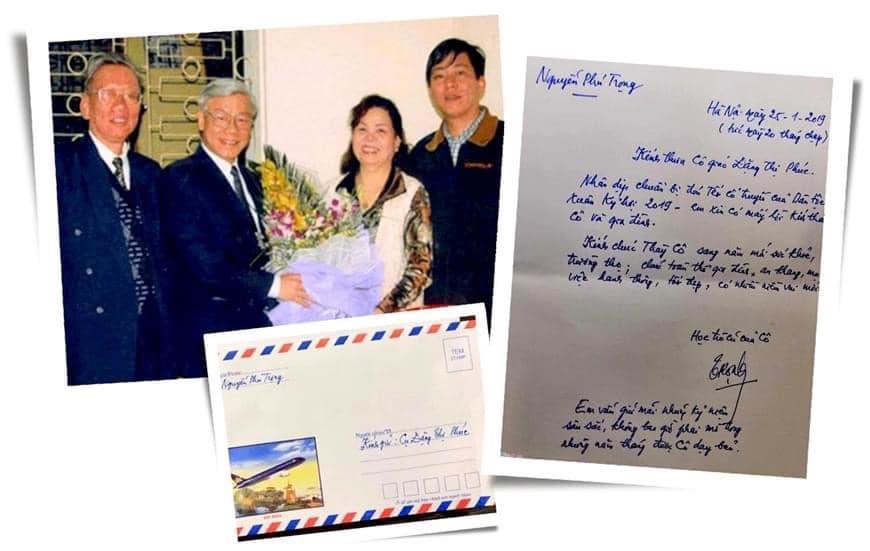 Nguyễn Phú Trọng
Hà Nội ngày 25-1-2019
(tức ngày 20 tháng chạp)
Kính thưa Cô giáo Đặng Thị Phúc.
Nhân dịp chuẩn bị đón Tết cổ truyền của Dân tộc
Xuân Kỷ Hợi 2019 - em xin có mấy lời kính thăm
Cô và gia đình.
Kính chúc Thầy Cô sang năm mới sức khỏe,
trường thọ; chúc toàn thể gia đình an khang, mọi
việc hanh thông, tốt đẹp, có nhiều niềm vui mới
Học trò cũ của Cô
Trọng
Em vẫn giữ mãi những kỷ niệm
sâu sắc, không bao giờ phai mờ trong
những năm tháng được Cô dạy bảo.
TEM
Nguyễn Phú Trọng
Kính gửi: Cụ Đặng Thị Phúc